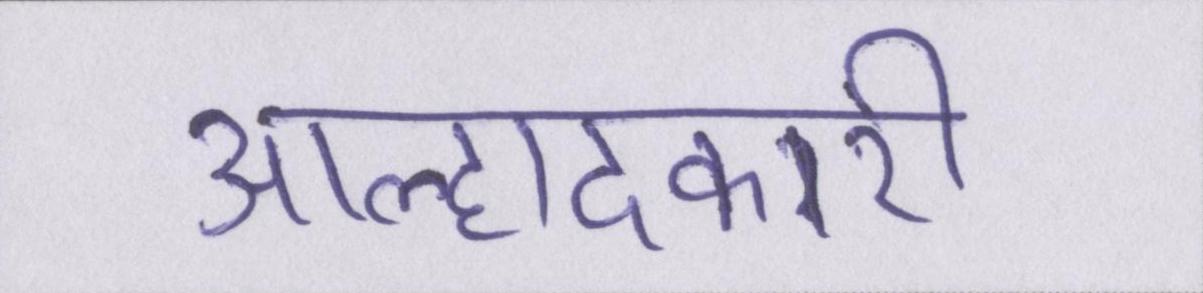 आल्हादकारी